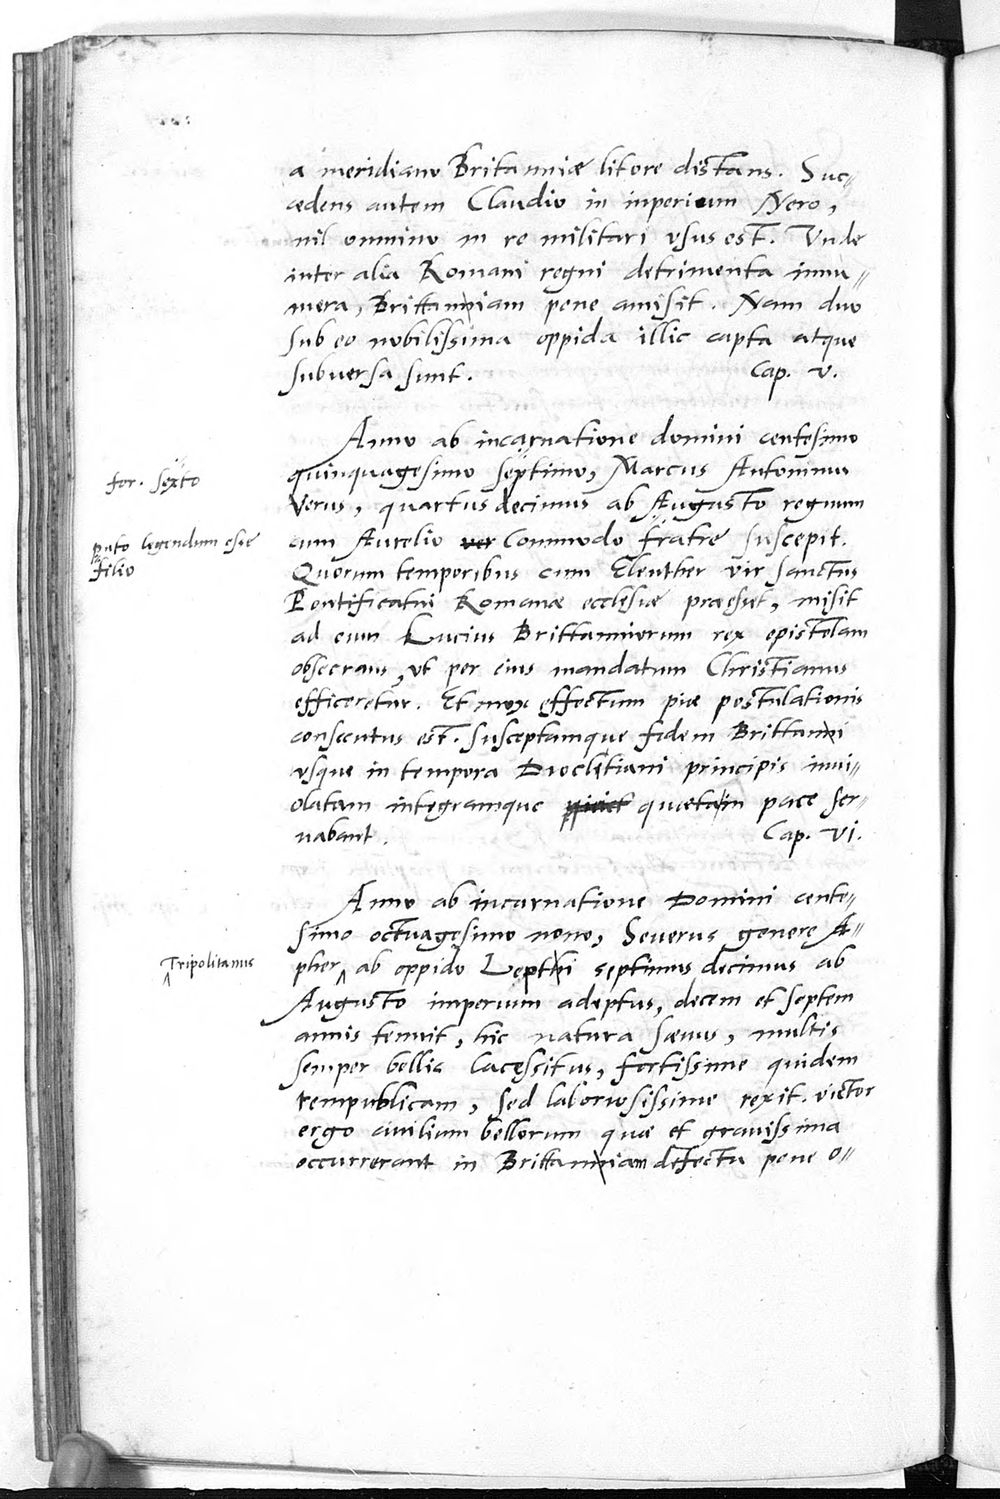 a meridiano Britanniæ litore distans. Suc=
cedens autem Claudio in inperium Nero,
nil omnino in re militari usus est. Unde
inter alia Romani regni detrimenta innu=
mera, Brittanniam pene amisit. Nam duo
sub eo nobilissima oppida illic capta atque
subversa sunt. Cap. V.
Anno ab incarnatione domini centesimo
quinquagesimo septimo, Marcus Antoninus
for. sexto
Verus, quartus decimus ab Augusto regnum
cum Aurelio ver Commodo fratre suscepit.
puto legendum esse
filio
Quorum temporibus cum Eleuther vir sanctus
Pontificatui Romanæ ecclesiæ præesset, misit
ad eum Lucius Brittanniorum rex epistolam
obsecrans, ut per eius mandatum Christianus
efficeretur. Et mox effectum piæ postulationis
consecutus est. susceptamque fidem Brittanni
usque in tempora Diocletiani principis invi=
olatam integramque quieta in pace ser=
vabant. Cap. VI.
Anno ab incarnatione Domini cente=
simo octuagesimo nono, Severus genere A=
pher ab oppido Lepthi septimus decimus ab
Tripolitanus
Augusto imperium adeptus, decem et septem
annis tenuit, hic natura sævus, multis
semper bellis lacessitus, fortissime quidem
rempublicam, sed laboriosissime rexit. victor
ergo civilium bellorum quæ et gravissima
occurrerant in Brittanniam defectu pene o=